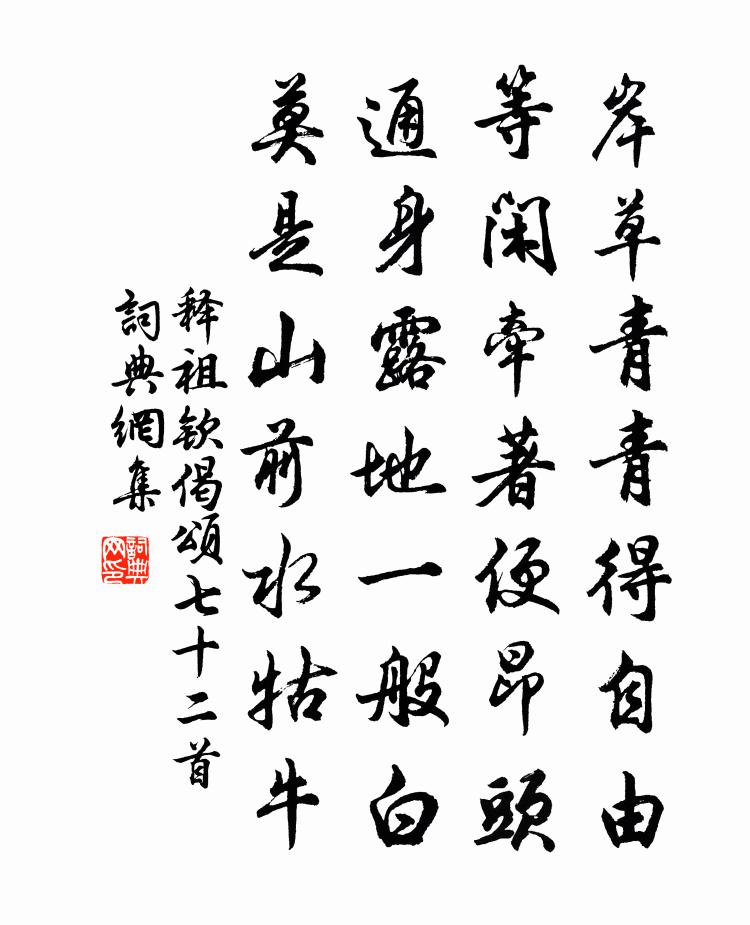 岸草青青得自由
等闲牽著便昂頭
通身露地一般白
莫是山前水牯牛
释祖钦偈頌七十二首
詞典網集
詞典网印